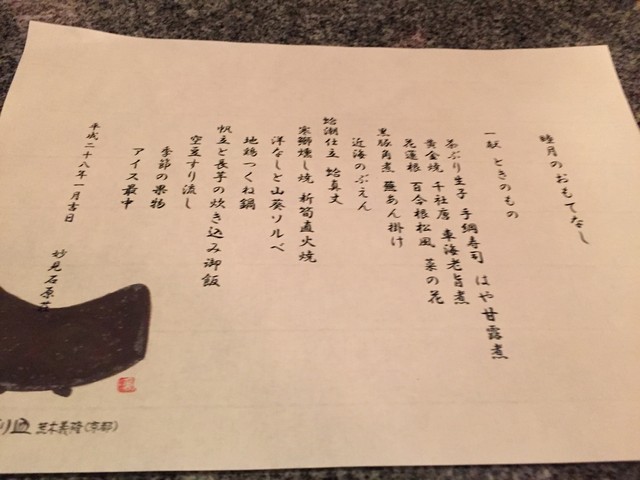 睦月のおもてなし
一献 ときのもの
茶ぶり生子 手綱寿司 はや甘露煮
黄金焼 千社唐 車海老旨煮
花蓮根 百合根松風 菜の花
黒豚角煮 蕪あん掛け
近海のぶえん
蛤潮仕立 蛤真丈
寒鰤燻し焼 新筍直火焼
洋なしと山葵ソルベ
地鶏つくね鍋
帆立と長芋の炊き込み御飯
空豆すり流し
季節の果物
アイス最中
平成二十八年一月吉日
妙見石原荘
り皿 荒木義隆(京都)